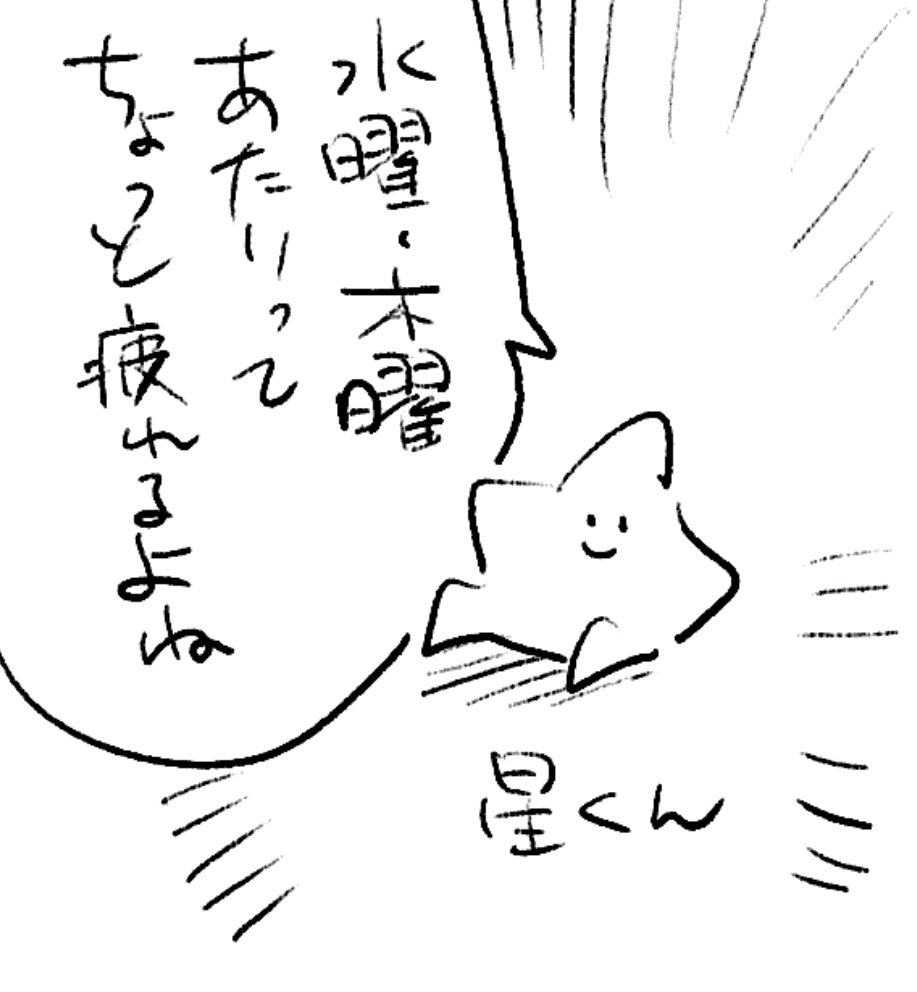 水曜・木曜
あたりって
ちょっと疲れるよね
星くん